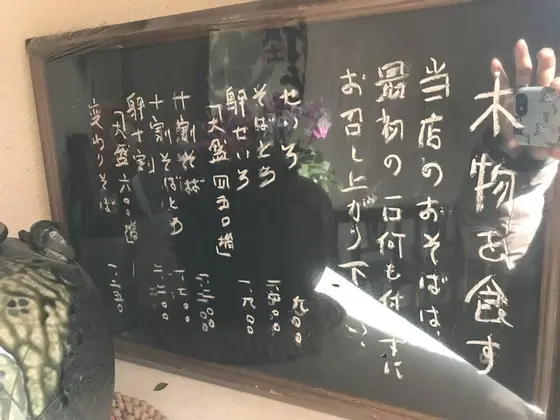 木物を食す
当店のおそばは、
最初の一口何も付けずに
お召し上がり下さい、
せいろ 九〇〇
そばとろ 一、四〇〇
鴨せいろ 一、九〇〇
「大盛 四五〇増」
十割そば 一、二〇〇
十割そばとろ 一、七〇〇
鴨十割 二、二〇〇
「大盛 六〇〇増」
変わりそば 一、二五〇